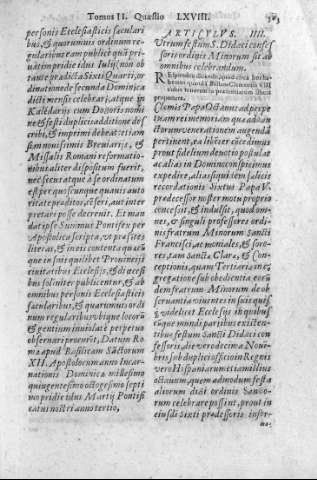 Tomos II. Quæstio LXVIII. 303
personis Ecclesiasticis sæculari
bus, & quorumuis ordinum re-
gularibus tam publicè quã pri-
uatim pridie idus Iulij, non ob
tante prædicta Sixti Quarti, or
dinatione de secunda Dominica
dicti mensis celebrar, atque in
Kalēdarijs cum Doctoris nomi
ne & festi duplicis additione des
cribi, & imprimi debeat: etiam
si in nouissimis Breuiarij, &
Missalis Romani reformatio-
nibus aliter dispositum fuerit,
nec secus atque à se ordinatum
est per quoscunque quauis auto
ritate præditos, cēseri, aut inter
pretari posse decreuit. Et man
dat ipse Summus Pontifex per
Apostolica scripta, vt præsētes
literas, & in eis contenta quæcũ
que in suis quilibet Prouincijs
ciuitatibus Ecclesijs, & diæcesi
bus solmiter publicentur, & ab
omnibus personis Ecclesiasticis
sæcularibus, & quarumuis ordi
num regularibus vbique locorũ
& gentium inuiolatè perpetuo
obseruari procurēt, Datum Ro
mæ apud Basilicam Sãctorum
XII. Apostolorum anno Incar-
nationis Dominicæ millesimo
quingentesimo octogesimo septi
mo pridie idus Martij Pontifi
catus nostri anno tertio,
ARTICVLVS. IIII.
Vtrum festum S. Didaci confes
soris ordinis Minorum sit ab
omnibus celebrandum.
Respondeo dicendo, quod circa hoc ha-
bemus quandã Bullam Clementis VIII
cuius tenorem in præsentiarum libuit
proponere.
Clemēs Papa Octauus ad perpe
tuam rei memoriam, ad augendã
Sanctorum venerationem indu-
cti pertinent, ea libēter cõcedimus
prout fidelium deuotio postulat
ac alias in Domino cõspicimus
expedire, aliàs siquidem fælicis
recordationis Sixtus Papa V.
prædecessor noster motu proprio
concessit, & indulsit, quod om-
nes, & singuli professores ordi-
nis fratrum Minorum Sancti
Francisci, ac moniales, & soro-
res, tam Sanctæ Claræ, & Con-
ceptionis, quam Tertiariæ con-
gregatione sub obedientia eorũ
dem fratrum Minorum de ob-
seruantia viuentes in suis quis
videlicet Ecclesijs in quibus
cũque mundi partibus existen-
tibus festum Sancti Didaci con
fessoris, die verò decima Nouẽ-
bris, sub duplici officio in Regnis
verò Hispaniarum etiam illius
octauum, quem admodum festa
aliorum dicti ordinis Sancto-
rum celebrare possint, prout in
eiusdē Sixti prædecessoris infor-
ma-